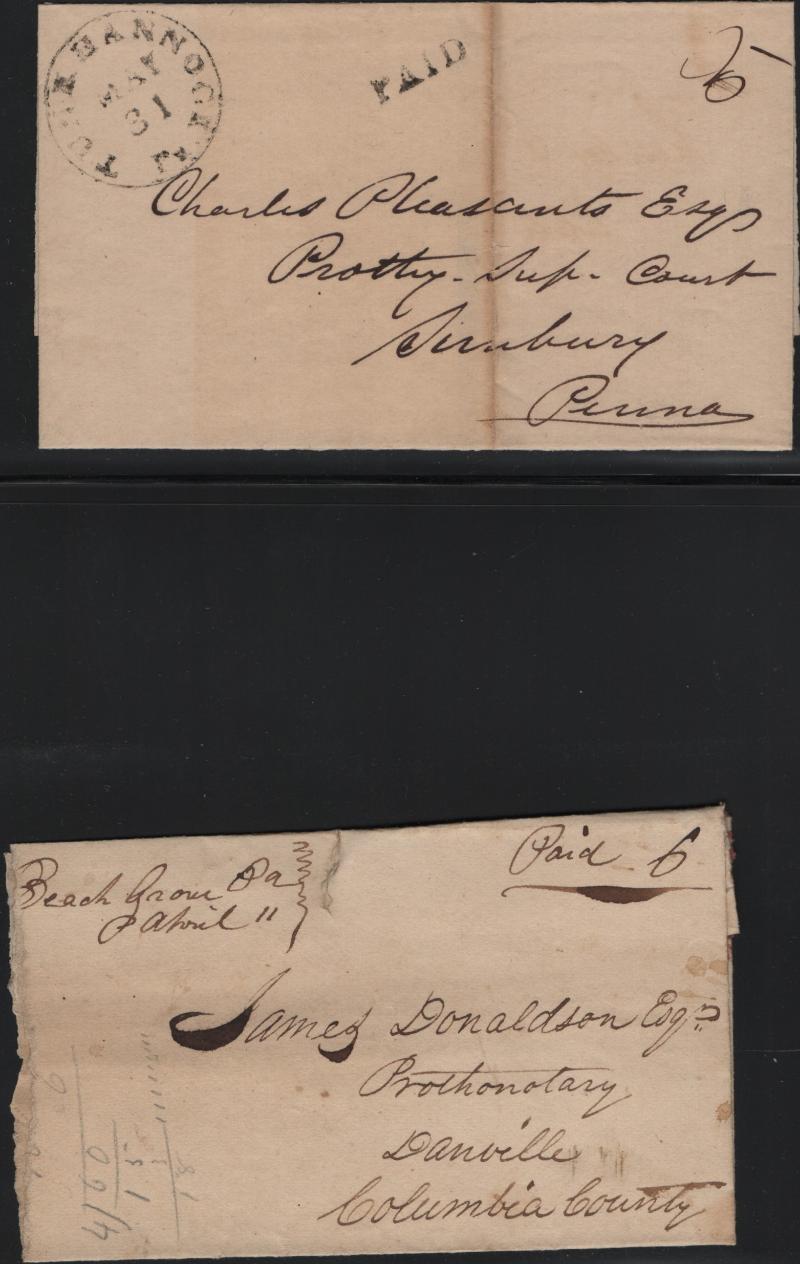 TUNKHANNOCK Pa
MAY
31
PAID
5
Charles Pleasants Esqr
Prothy - Sup - Court
Sunbury
Penna
Beach Grove Pa
April 11
Paid 6
James Donaldson Esqr
Prothonotary
Danville
Columbia County
4/60
15
18